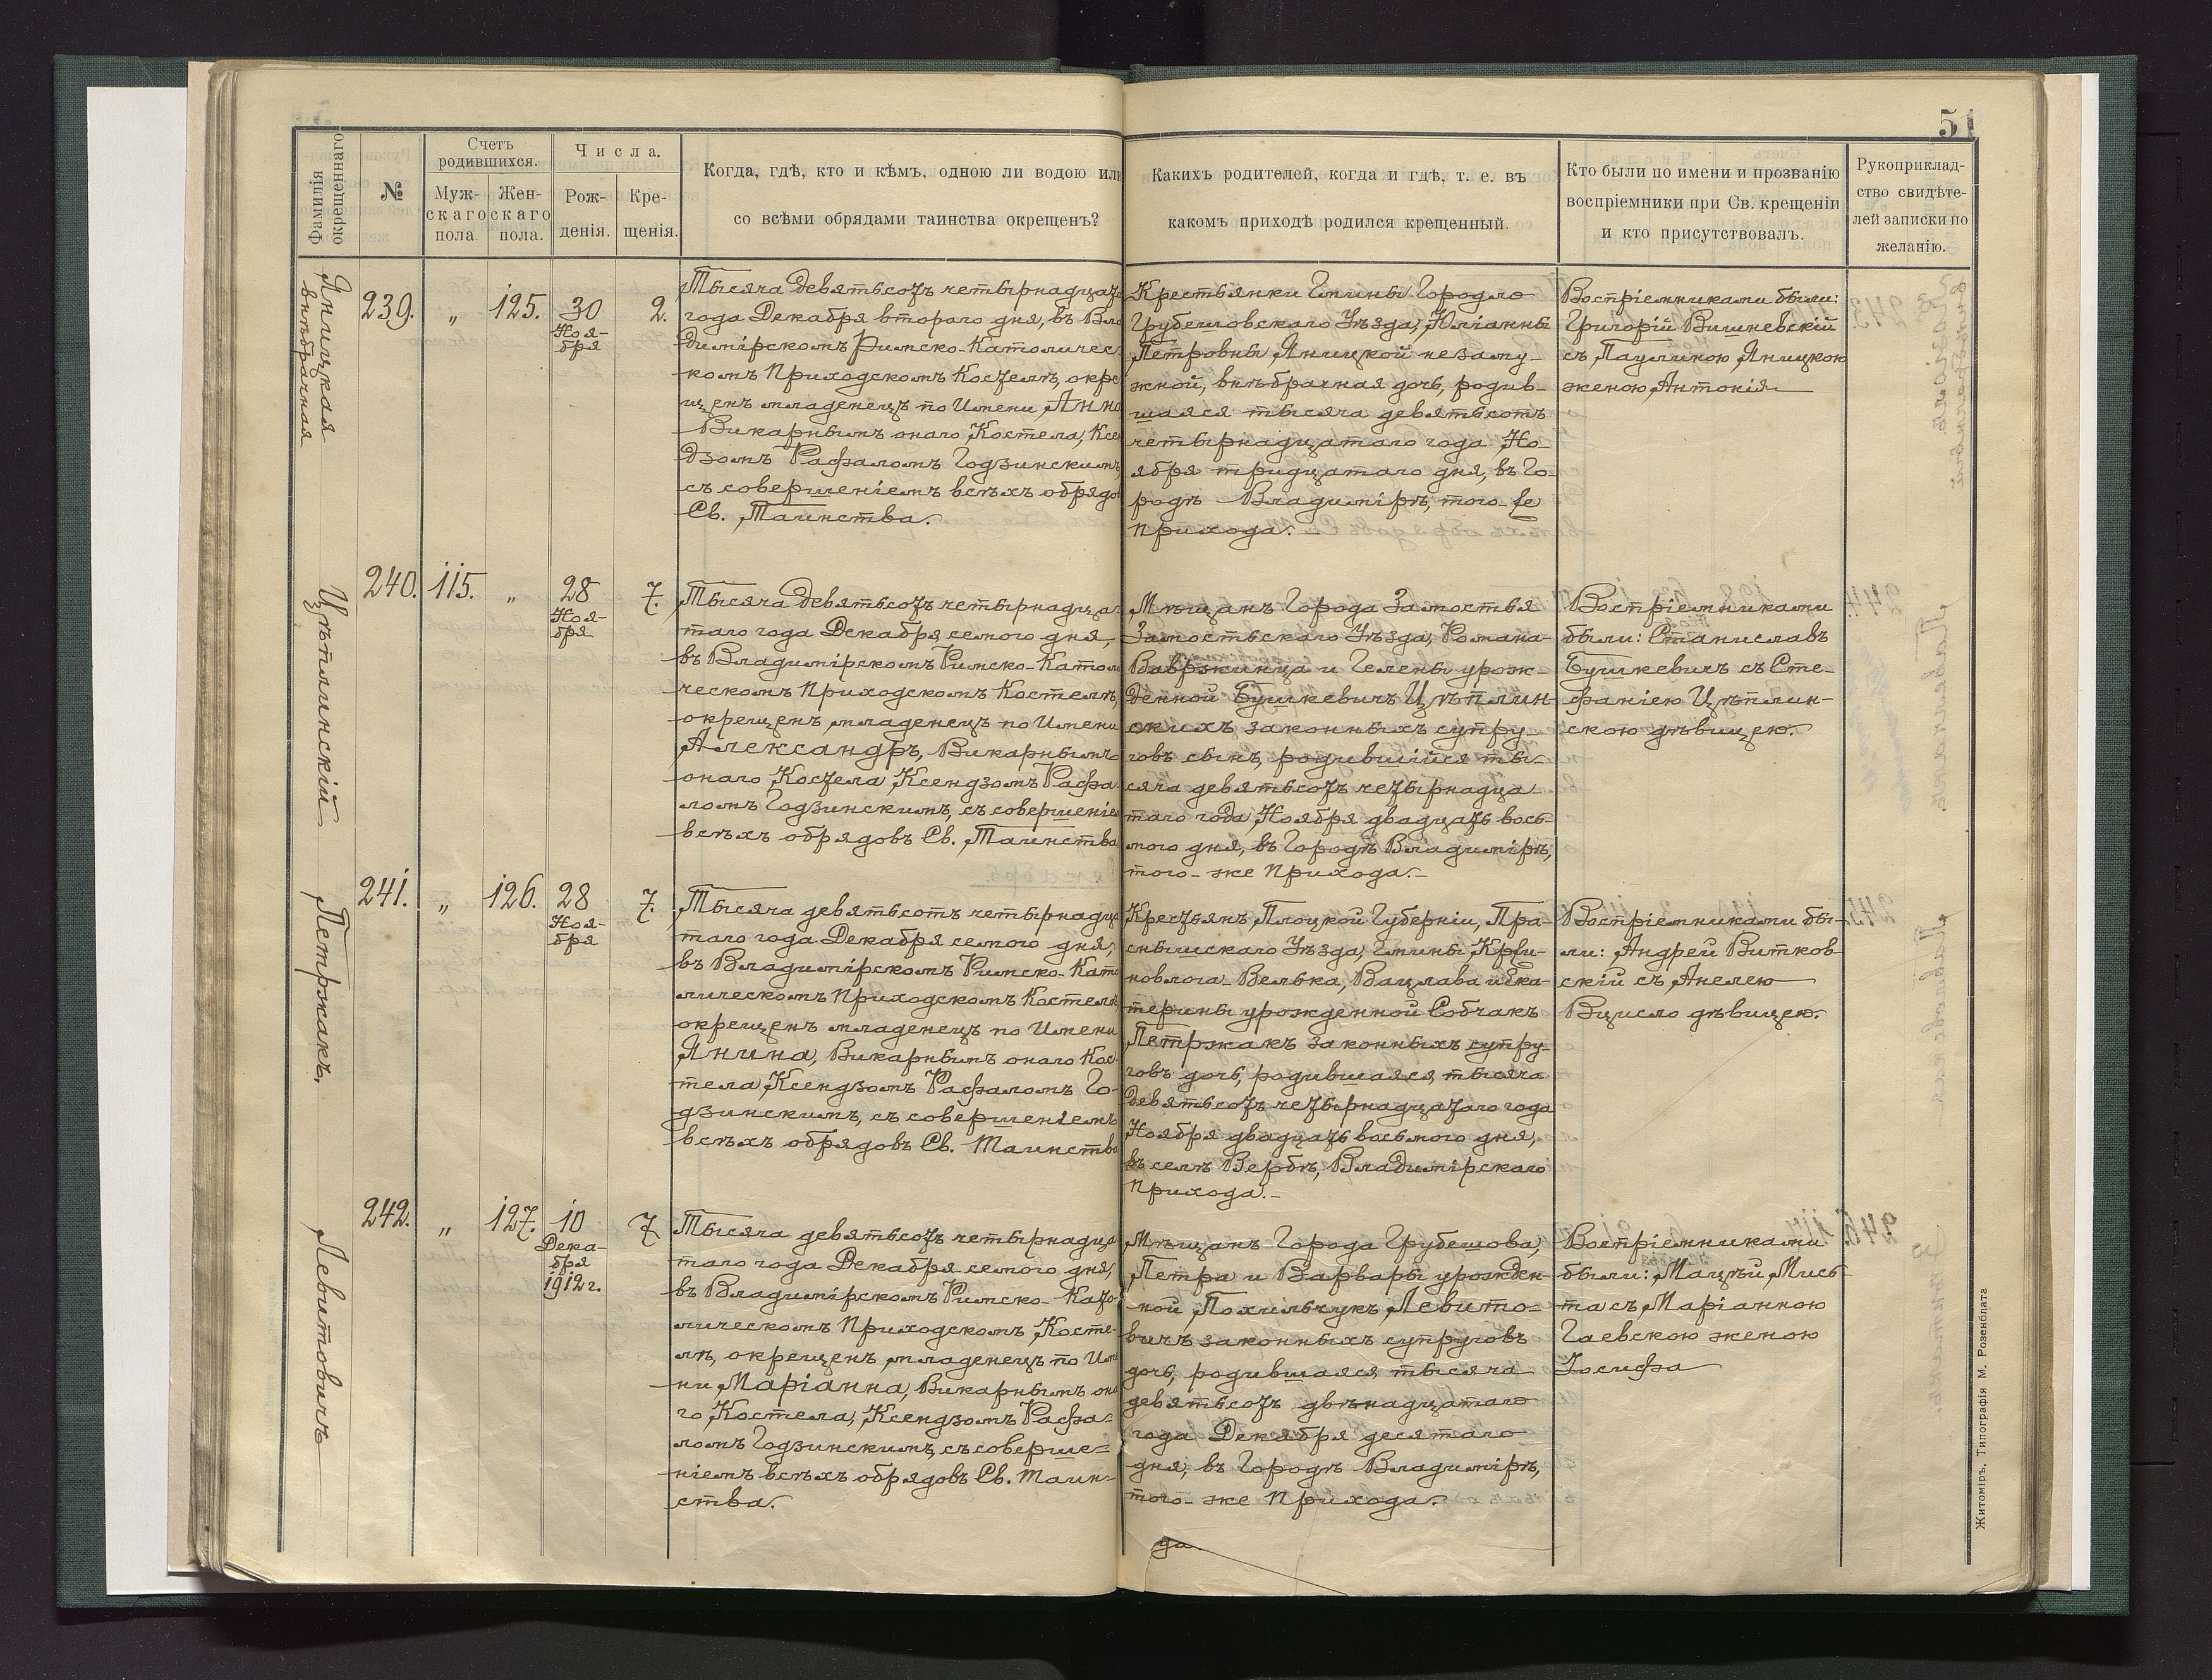 51
Фамилія окрещеннаго
№
Счетъ родившихся.
Мужскаго пола.
Женскаго пола.
Числа.
Рожденія.
Крещенія.
Когда, гдѣ, кто и кѣмъ, одною ли водою или
со всѣми обрядами таинства окрещенъ?
Какихъ родителей, когда и гдѣ, т. е. въ
какомъ приходѣ родился крещенный.
Кто были по имени и прозванію
воспріемники при Св. крещеніи
и кто присутствовалъ.
Рукоприклад-
ство свидѣте-
лей записки по
желанію.
Яницкая
внѣбрачная
239.
„
125.
30
Ноя-
бря
2.
Тысяча девятьсотъ четырнадцата
года Декабря втораго дня, въ Вла
димірскомъ Римско-Католичес
комъ Приходскомъ Костелѣ, окре
щенъ младенецъ по Имени Анна
Викарнымъ онаго Костела, Ксен
дзомъ Рафаломъ Годзинскимъ,
съ совершеніемъ всѣхъ обрядо
Св. Таинства.
Крестьянки Гмины Городло
Грубешовскаго Уѣзда, Юліанны
Петровны Яницкой незаму-
жной, внѣбрачная дочь, родив-
шаяся тысяча девятьсотъ
четырнадцатаго года Но
ября тридцатаго дня, въ Го-
родѣ Владимірѣ, того-же
Прихода.-
Воспріемниками были:
Григорій Вишневскій
съ Паулиною Яницкою
женою Антонія
Цѣплинскій
240.
115.
„
28
Ноя-
бря
7.
Тысяча девятьсотъ четырнадца-
таго года Декабря седмого дня,
въ Владимірскомъ Римско-Катол
ческомъ Приходскомъ Костелѣ,
окрещенъ младенецъ по Имени
Александръ, Викарнымъ
онаго Костела Ксендзомъ Рафа
ломъ Годзинскимъ, съ совершеніе
всѣхъ обрядовъ Св. Таинства
Мѣщанъ Города Замостья
Замостьскаго Уѣзда, Романа-
Вавржинца и Гелены урож-
денной Бушкевичъ Цѣплин
скихъ законныхъ супру-
говъ сынъ, родившійся ты-
сяча девятьсотъ четырнадца
таго года Ноября двадцать вось-
мого дня, въ Городѣ Владимірѣ,
того-же Прихода.-
Воспріемниками
были: Станиславъ
Бушкевичъ съ Сте-
фаніею Цѣплин-
скою дѣвицею.
Петржакъ.
241.
„
126.
28
Ноя-
бря
7.
Тысяча девятьсотъ четырнадца
таго года Декабря семого дня,
въ Владимірскомъ Римско-Като
лическомъ Приходскомъ Костелѣ
окрещенъ младенецъ по Имени
Янина, Викарнымъ онаго Кос-
тела, Ксендзомъ Рафаломъ Го-
дзинскимъ, съ совершеніемъ
всѣхъ обрядовъ Св. Таинства
Крестьянъ Плоцкой Губерніи, Пра-
снышскаго Уѣзда, Гмины Крши-
новлога-Велька, Вацлава и Ека-
терины урожденной Собчакъ
Петржакъ законныхъ супру-
говъ дочь, родившаяся тысяча
девятьсотъ четырнадцатаго года
Ноября двадцать восьмого дня,
въ селѣ Вербѣ, Владимірскаго
Прихода.-
Воспріемниками бы-
ли: Андрей Витков-
скій съ Анелею
Вцисло дѣвицею.
Левитовичъ
242.
„
127.
10
Дека-
бря
1912 г.
7.
Тысяча девятьсотъ четырнадца
таго года Декабря семого дня,
въ Владимірскомъ Римско-Като-
лическомъ Приходскомъ Косте-
лѣ, окрещенъ младенецъ по Име
ни Маріанна, Викарнымъ она
го Костела, Ксендзомъ Рафа-
ломъ Годзинскимъ, съ соверше-
ніемъ всѣхъ обрядовъ Св. Таин-
ства.
Мѣщанъ Города Грубешова,
Петра и Варвары урожден-
ной Похильчукъ Левито-
вичъ законныхъ супруговъ
дочь, родившаяся тысяча
девятьсотъ двѣнадцатаго
года Декабря десятаго
дня, въ Городѣ Владимірѣ,
того-же Прихода.
Воспріемниками
были: Мацѣй Мись-
та съ Маріанною
Гаевскою женою
Іосифа
да
Житоміръ, Типографія М. Розенблата